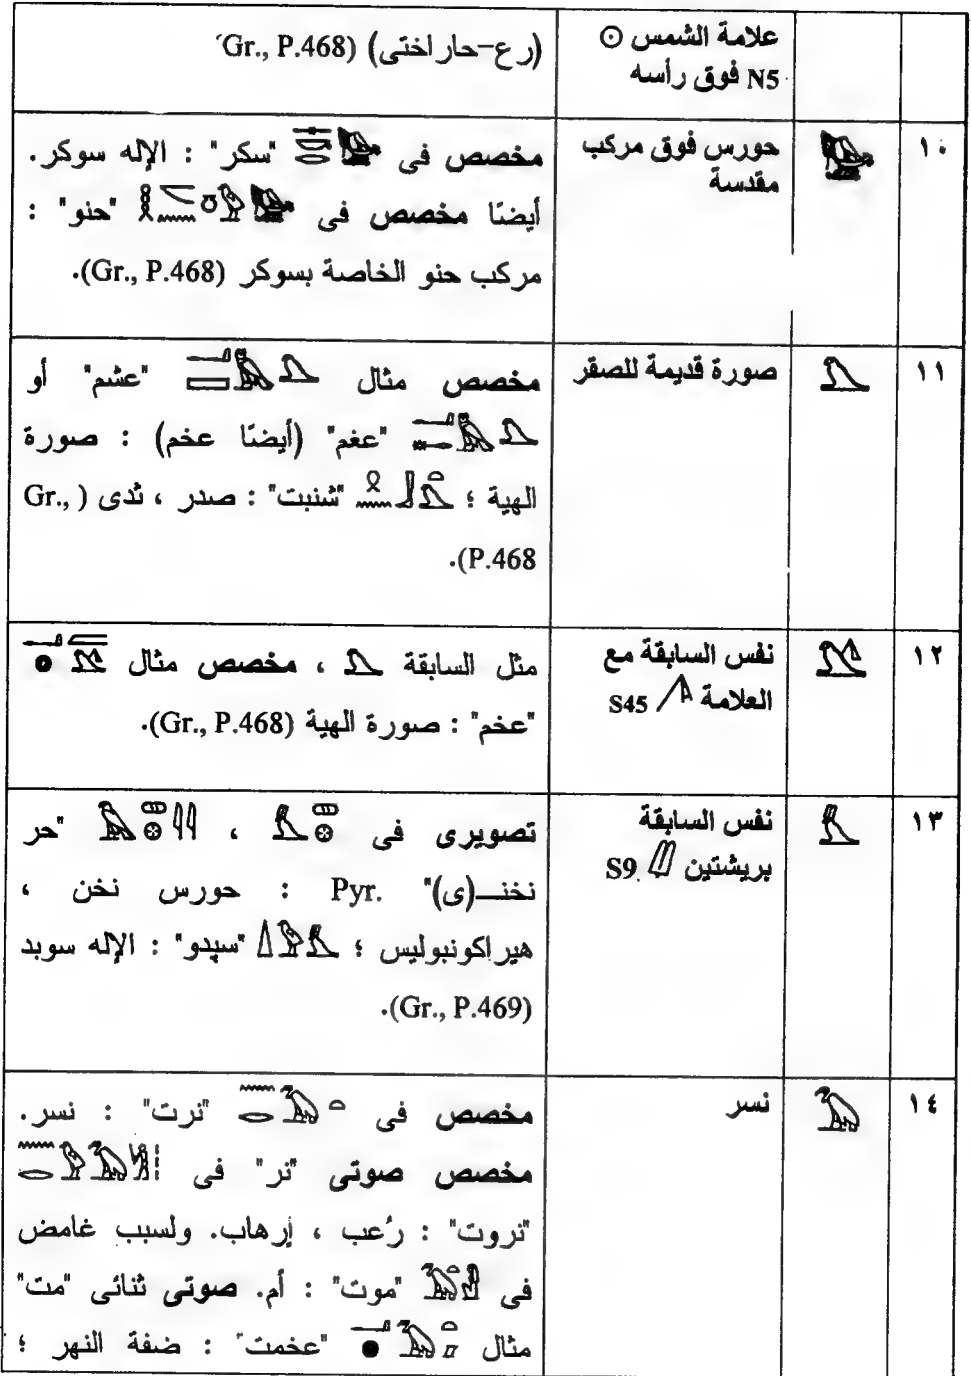 علامة الشمس ☉ (رع-حاراختى) (Gr., P.468
N5 فوق رأسه
١٠ حورس فوق مركب مخصص فى "سكر" : الإله سوكر.
مقدسة أيضًا مخصص فى "حنو" :
مركب حنو الخاصة بسوكر (Gr., P.468).
١١ صورة قديمة للصقر مخصص مثال "عشم" أو
"عغم" (أيضًا عخم) : صورة
الهية ؛ "شنبت" : صدر ، ثدى (Gr.,
P.468).
١٢ نفس السابقة مع مثل السابقة ، مخصص مثال
العلامة S45 "عخم" : صورة الهية (Gr., P.468).
١٣ نفس السابقة تصويرى فى ، "حر
بريشتين S9 نخنـ(ى)" Pyr. : حورس نخن ،
هيراكونبوليس ؛ "سپدو" : الإله سوبد
(Gr., P.469).
١٤ نسر مخصص فى "نرت" : نسر.
مخصص صوتى "نر" فى
"نروت" : رُعب ، إرهاب. ولسبب غامض
فى "موت" : أم. صوتى ثنائى "مت"
مثال "عخمت" : ضفة النهر ؛